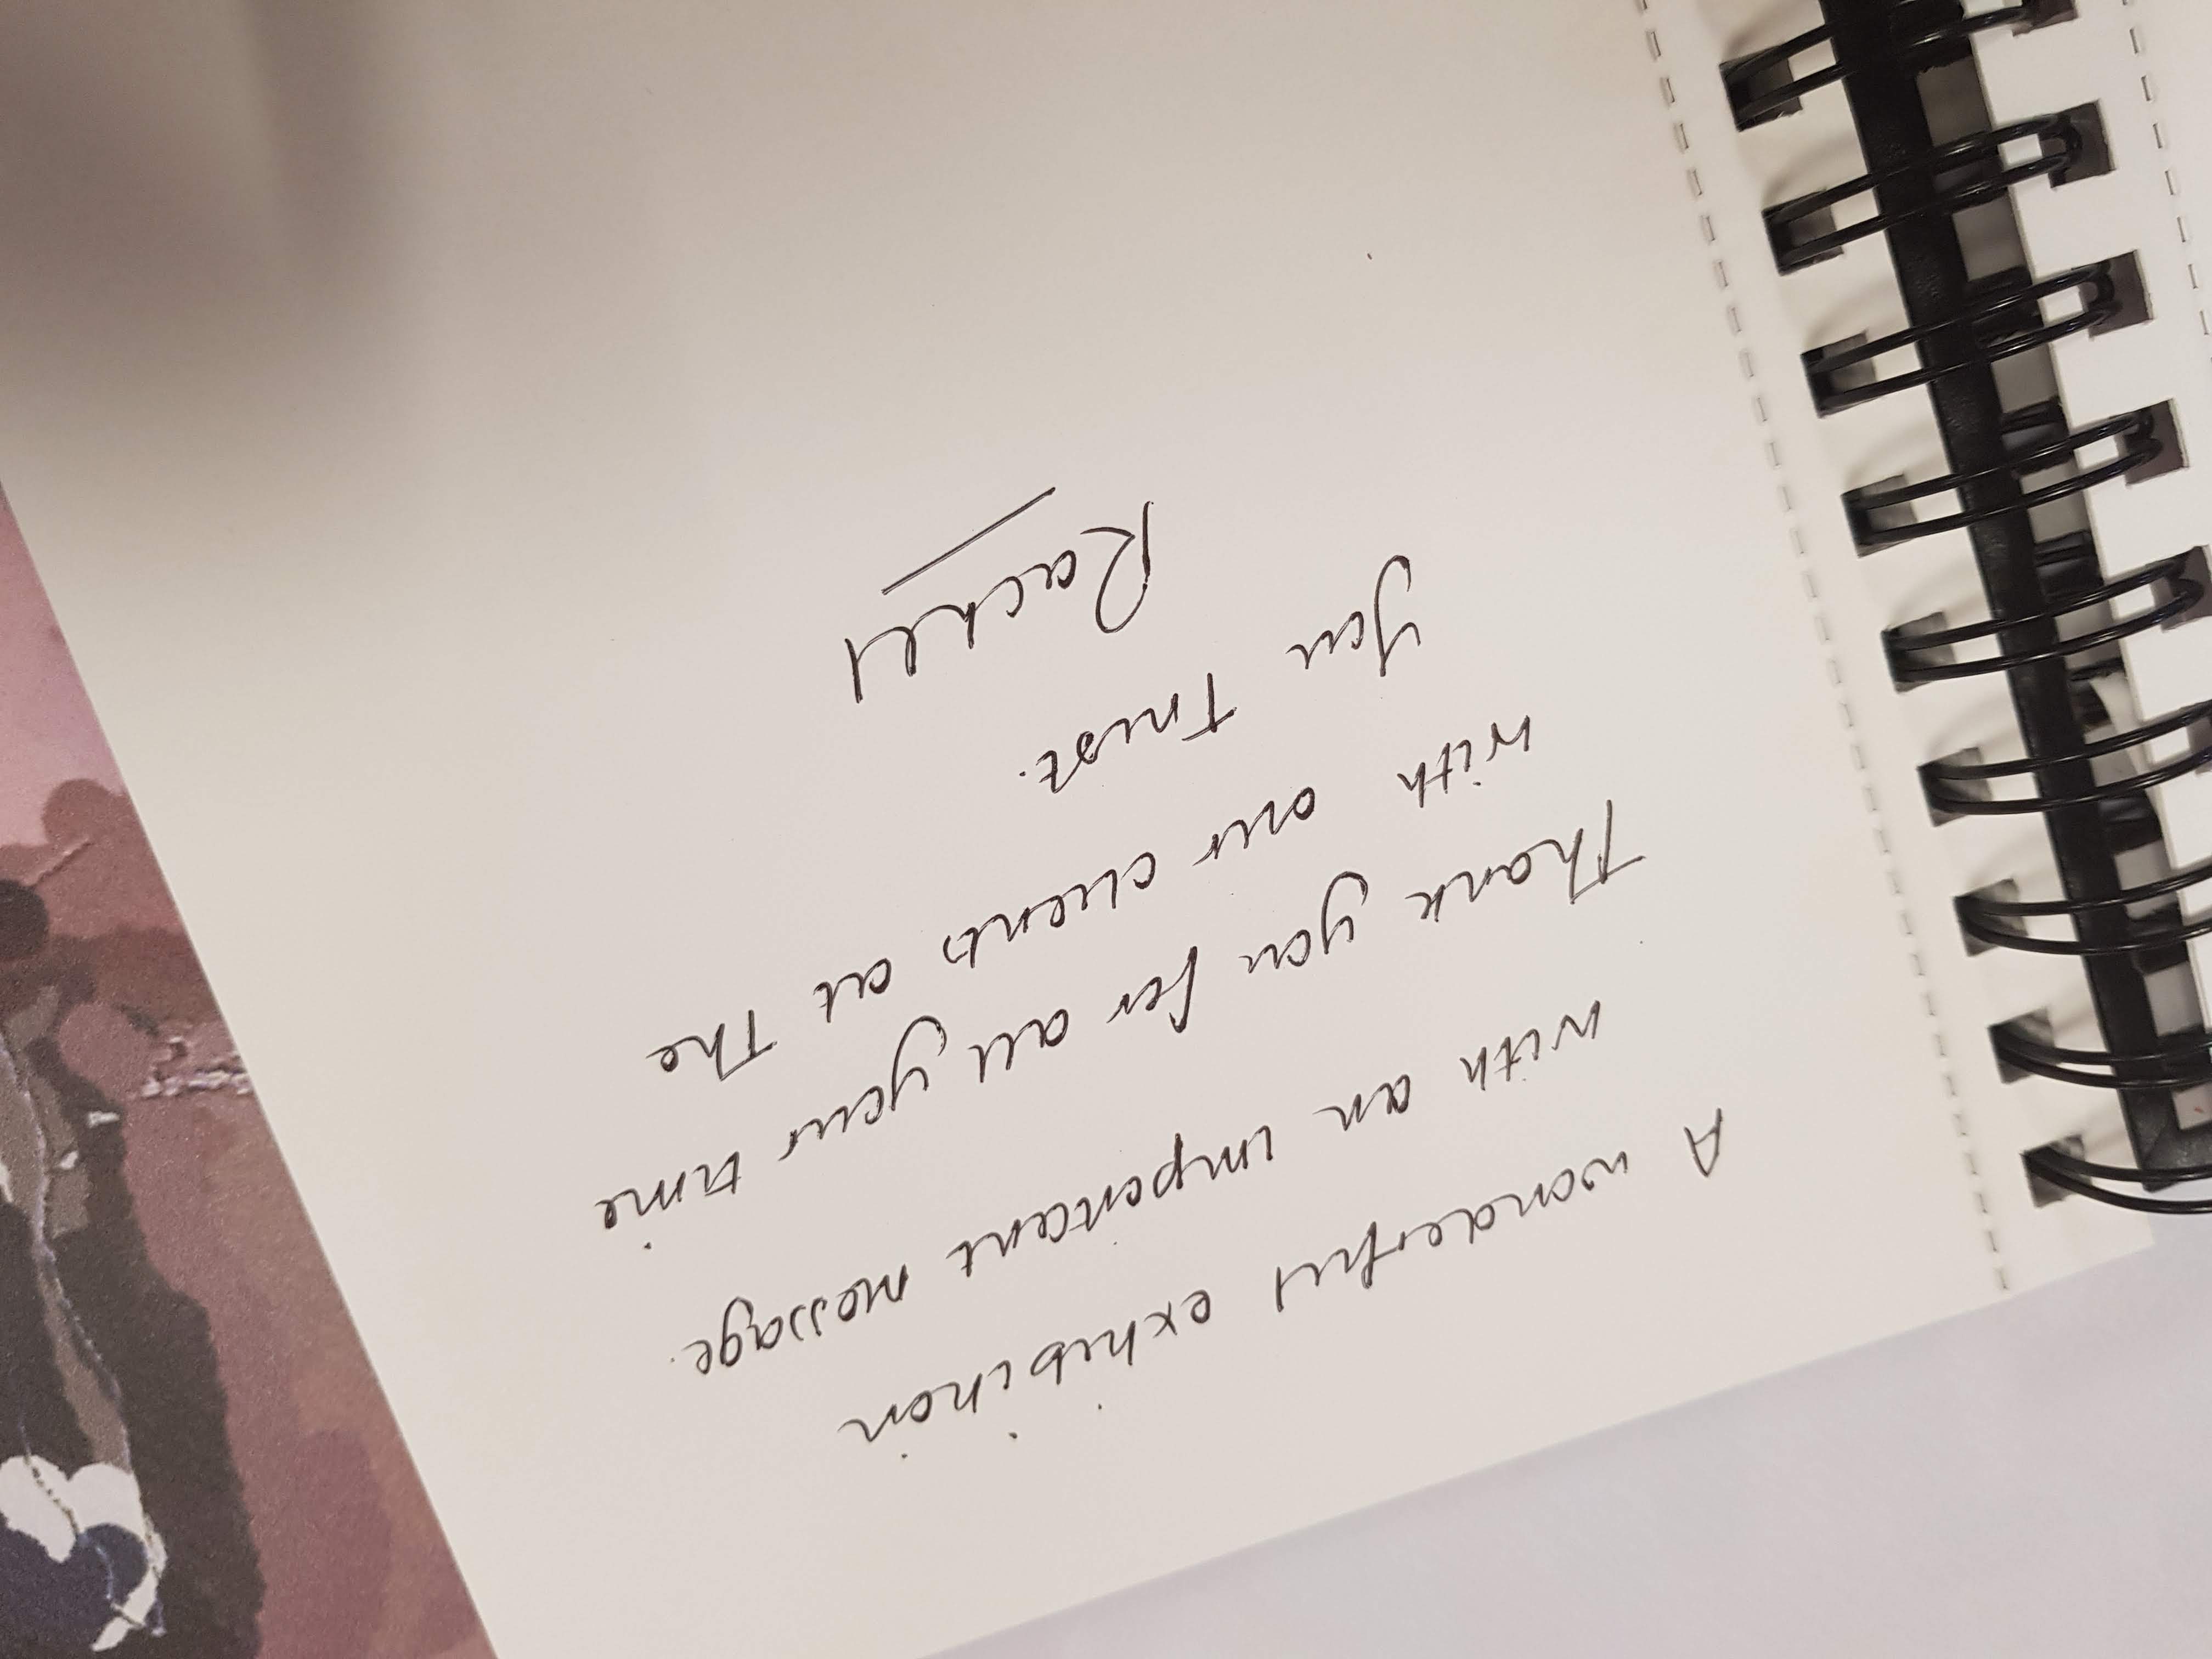 A wonderful exhibition
with an important message.
Thank you for all your time
with our clients at The
You Trust.
Rachel